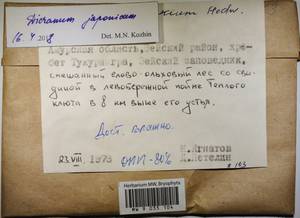 Dicranum japonicum
16.4.2018
Det. M.N. Kozhin
Hedw.
Амурская область, Зейский район, хре-
бет Тукурингра, Зейский заповедник,
смешанный елово-ольховый лес со сви-
диной в левобережной пойме Теплого
ключа в 8 км выше его устья.
23.VIII. 1978
М. Игнатов
А. Петелин
Herbarium MW, Bryophyta
MW 9 035 104